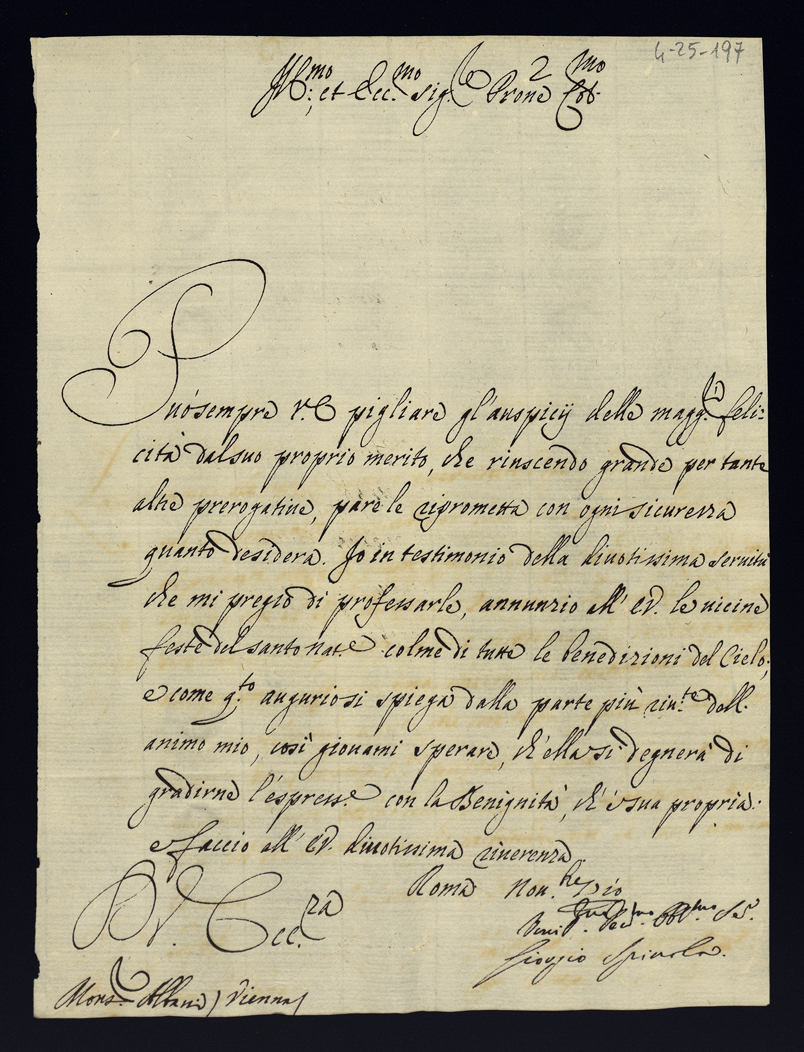 4-25-197
Ill.mo et Ecc.mo Sig.re Prone Col.mo
Può sempre V.E. pigliare gl'auspicij delle magg.ri feli-
cità dal suo proprio merito, che riuscendo grande per tante
altre prerogative, pare le riprometta con ogni sicurezza
quanto desidera. Io in testimonio della divotissima servitù
che mi pregio di professarle, annunzio all' EV. le vicine
feste del santo nat.e colme di tutte le benedizioni del Cielo;
e come q.to augurio si spiega dalla parte più riv.te dell'
animo mio, così giovami sperare, ch'ella si degnerà di
gradirne l'espress.e con la Benignità, ch'è sua propria:
e faccio all' EV. divotissima riverenza.
Roma Nov.bre 1710
D V. Ecc.za
Giorgio Spinola.
Mons.re Albani / Vienna /